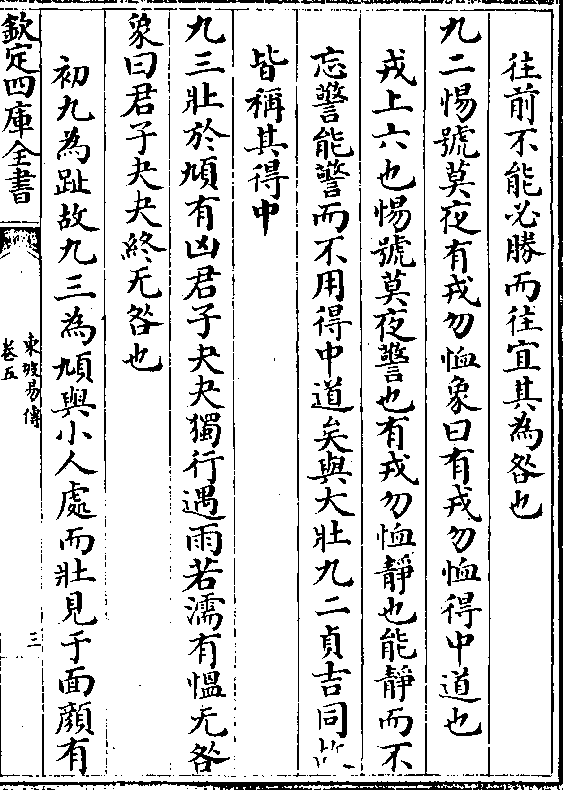 往前不能必勝而往宜其為咎也
九二惕號莫夜有戎勿恤象曰有戎勿恤得中道也
戎上六也惕號莫夜警也有戎勿恤靜也能靜而不
忘警能警而不用得中道矣與大壯九二貞吉同故
皆稱其得中
九三壯於頄有凶君子夬夬獨行遇雨若濡有愠无咎
象曰君子夬夬終无咎也
初九為趾故九三為頄與小人處而壯見于面顔有
欽定四庫全書
東坡易傳
卷五
三